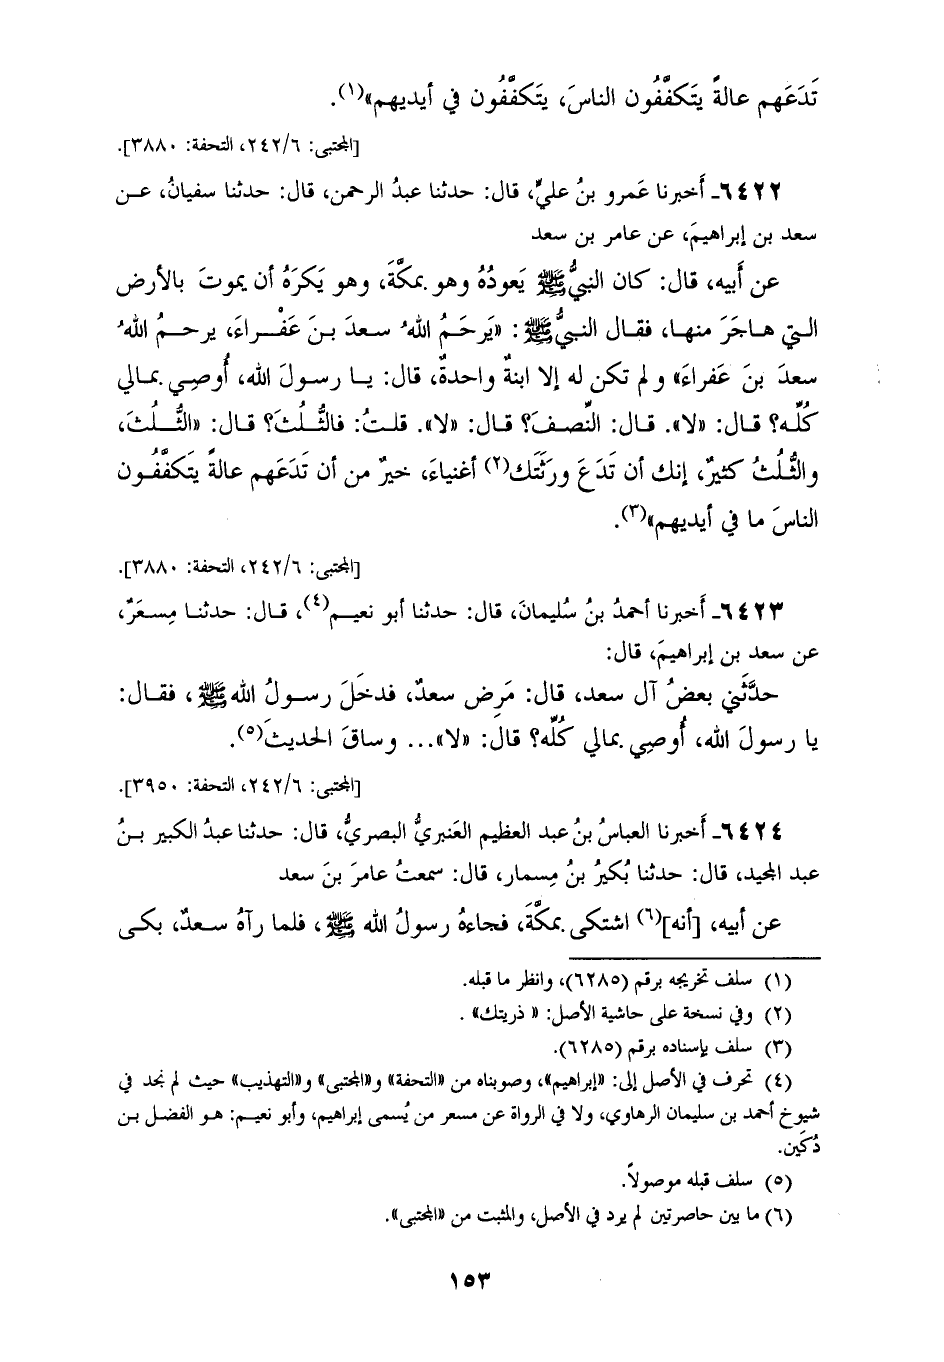 تَدَعَهم عالةً يتَكفَّفُون الناسَ، يتَكفَّفُون في أيديهم»(١).
[المجتبى: ٢٤٢/٦، التحفة: ٣٨٨٠].
٦٤٢٢ـ أَخبرنا عَمرو بنُ عليٍّ، قال: حدثنا عبدُ الرحمن، قال: حدثنا سفيانُ، عن
سعد بن إبراهيمَ، عن عامر بن سعد
عن أَبيه، قال: كان النبيُّ ﷺ يَعودُهُ وهو بمكَّةَ، وهو يَكرَهُ أن يموتَ بالأرض
التي هاجَرَ منها، فقال النبيُّ ﷺ: «يَرحَمُ اللهُ سعدَ بنَ عَفْراءَ، يرحمُ اللهُ
سعدَ بنَ عَفراءَ» ولم تكن له إلا ابنةٌ واحدةٌ، قال: يا رسولَ الله، أُوصِي بمالي
كُلِّه؟ قال: «لا». قال: النِّصفَ؟ قال: «لا». قلتُ: فالثُّلثَ؟ قال: «الثُّلثَ،
والثُّلُثُ كثيرٌ، إنك أن تَدَعَ ورَثَتَك(٢) أغنياءَ، خيرٌ من أن تَدَعَهم عالةً يَتَكفَّفُون
الناسَ ما في أيديهم»(٣).
[المجتبى: ٢٤٢/٦، التحفة: ٣٨٨٠].
٦٤٢٣ـ أَخبرنا أحمدُ بنُ سُليمانَ، قال: حدثنا أبو نعيم(٤)، قال: حدثنا مِسعَرٌ،
عن سعد بن إبراهيمَ، قال:
حدَّثَني بعضُ آل سعد، قال: مَرِض سعدٌ، فدخَلَ رسولُ الله ﷺ، فقال:
يا رسولَ الله، أُوصِي بمالي كُلِّه؟ قال: «لا»... وساقَ الحديثَ(٥).
[المجتبى: ٢٤٢/٦، التحفة: ٣٩٥٠].
٦٤٢٤ـ أَخبرنا العباسُ بنُ عبد العظيم العَنبريُّ البصريُّ، قال: حدثنا عبدُ الكبير بنُ
عبد المجيد، قال: حدثنا بُكيرُ بنُ مِسمار، قال: سمعتُ عامرَ بنَ سعد
عن أبيه، [أنه](٦) اشتكى بمكَّةَ، فجاءهُ رسولُ الله ﷺ، فلما رآهُ سعدٌ، بكى
(١) سلف تخريجه برقم (٦٢٨٥)، وانظر ما قبله.
(٢) وفي نسخة على حاشية الأصل: « ذريتك» .
(٣) سلف بإسناده برقم (٦٢٨٥).
(٤) تحرف في الأصل إلى: «إبراهيم»، وصوبناه من «التحفة» و«المجتبى» و«التهذيب» حيث لم نجد في
شيوخ أحمد بن سليمان الرهاوي، ولا في الرواة عن مسعر من يُسمى إبراهيم، وأبو نعيم: هو الفضل بن
دُكَين.
(٥) سلف قبله موصولاً.
(٦) ما بين حاصرتين لم يرد في الأصل، والمثبت من «المجتبى».
١٥٣